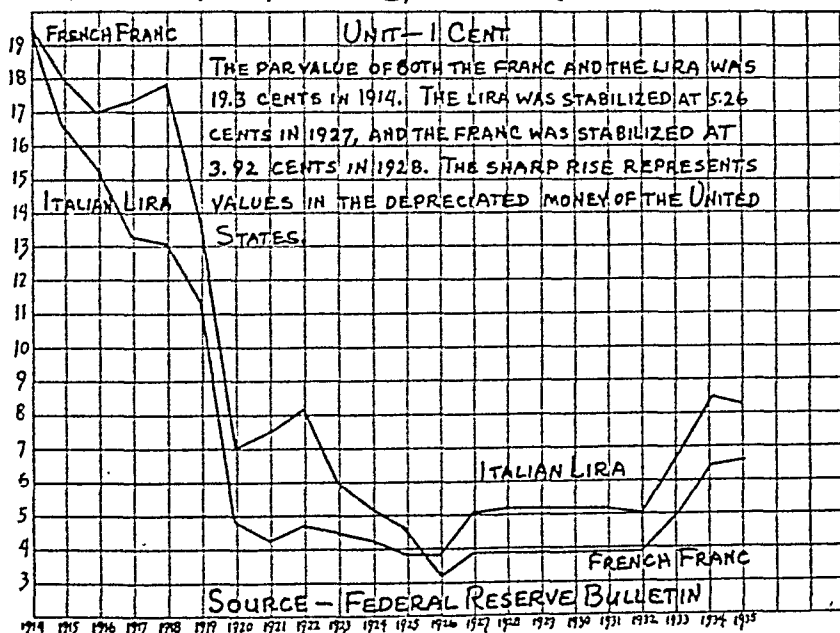 UNIT—1 CENT
FRENCH FRANC
THE PAR VALUE OF BOTH THE FRANC AND THE LIRA WAS
19.3 CENTS IN 1914. THE LIRA WAS STABILIZED AT 5.26
CENTS IN 1927, AND THE FRANC WAS STABILIZED AT
3.92 CENTS IN 1928. THE SHARP RISE REPRESENTS
VALUES IN THE DEPRECIATED MONEY OF THE UNITED
STATES.
ITALIAN LIRA
19
18
17
16
15
14
13
12
11
10
9
8
7
6
5
4
3
ITALIAN LIRA
FRENCH FRANC
SOURCE — FEDERAL RESERVE BULLETIN
1914 1915 1916 1917 1918 1919 1920 1921 1922 1923 1924 1925 1926 1927 1928 1929 1930 1931 1932 1933 1934 1935